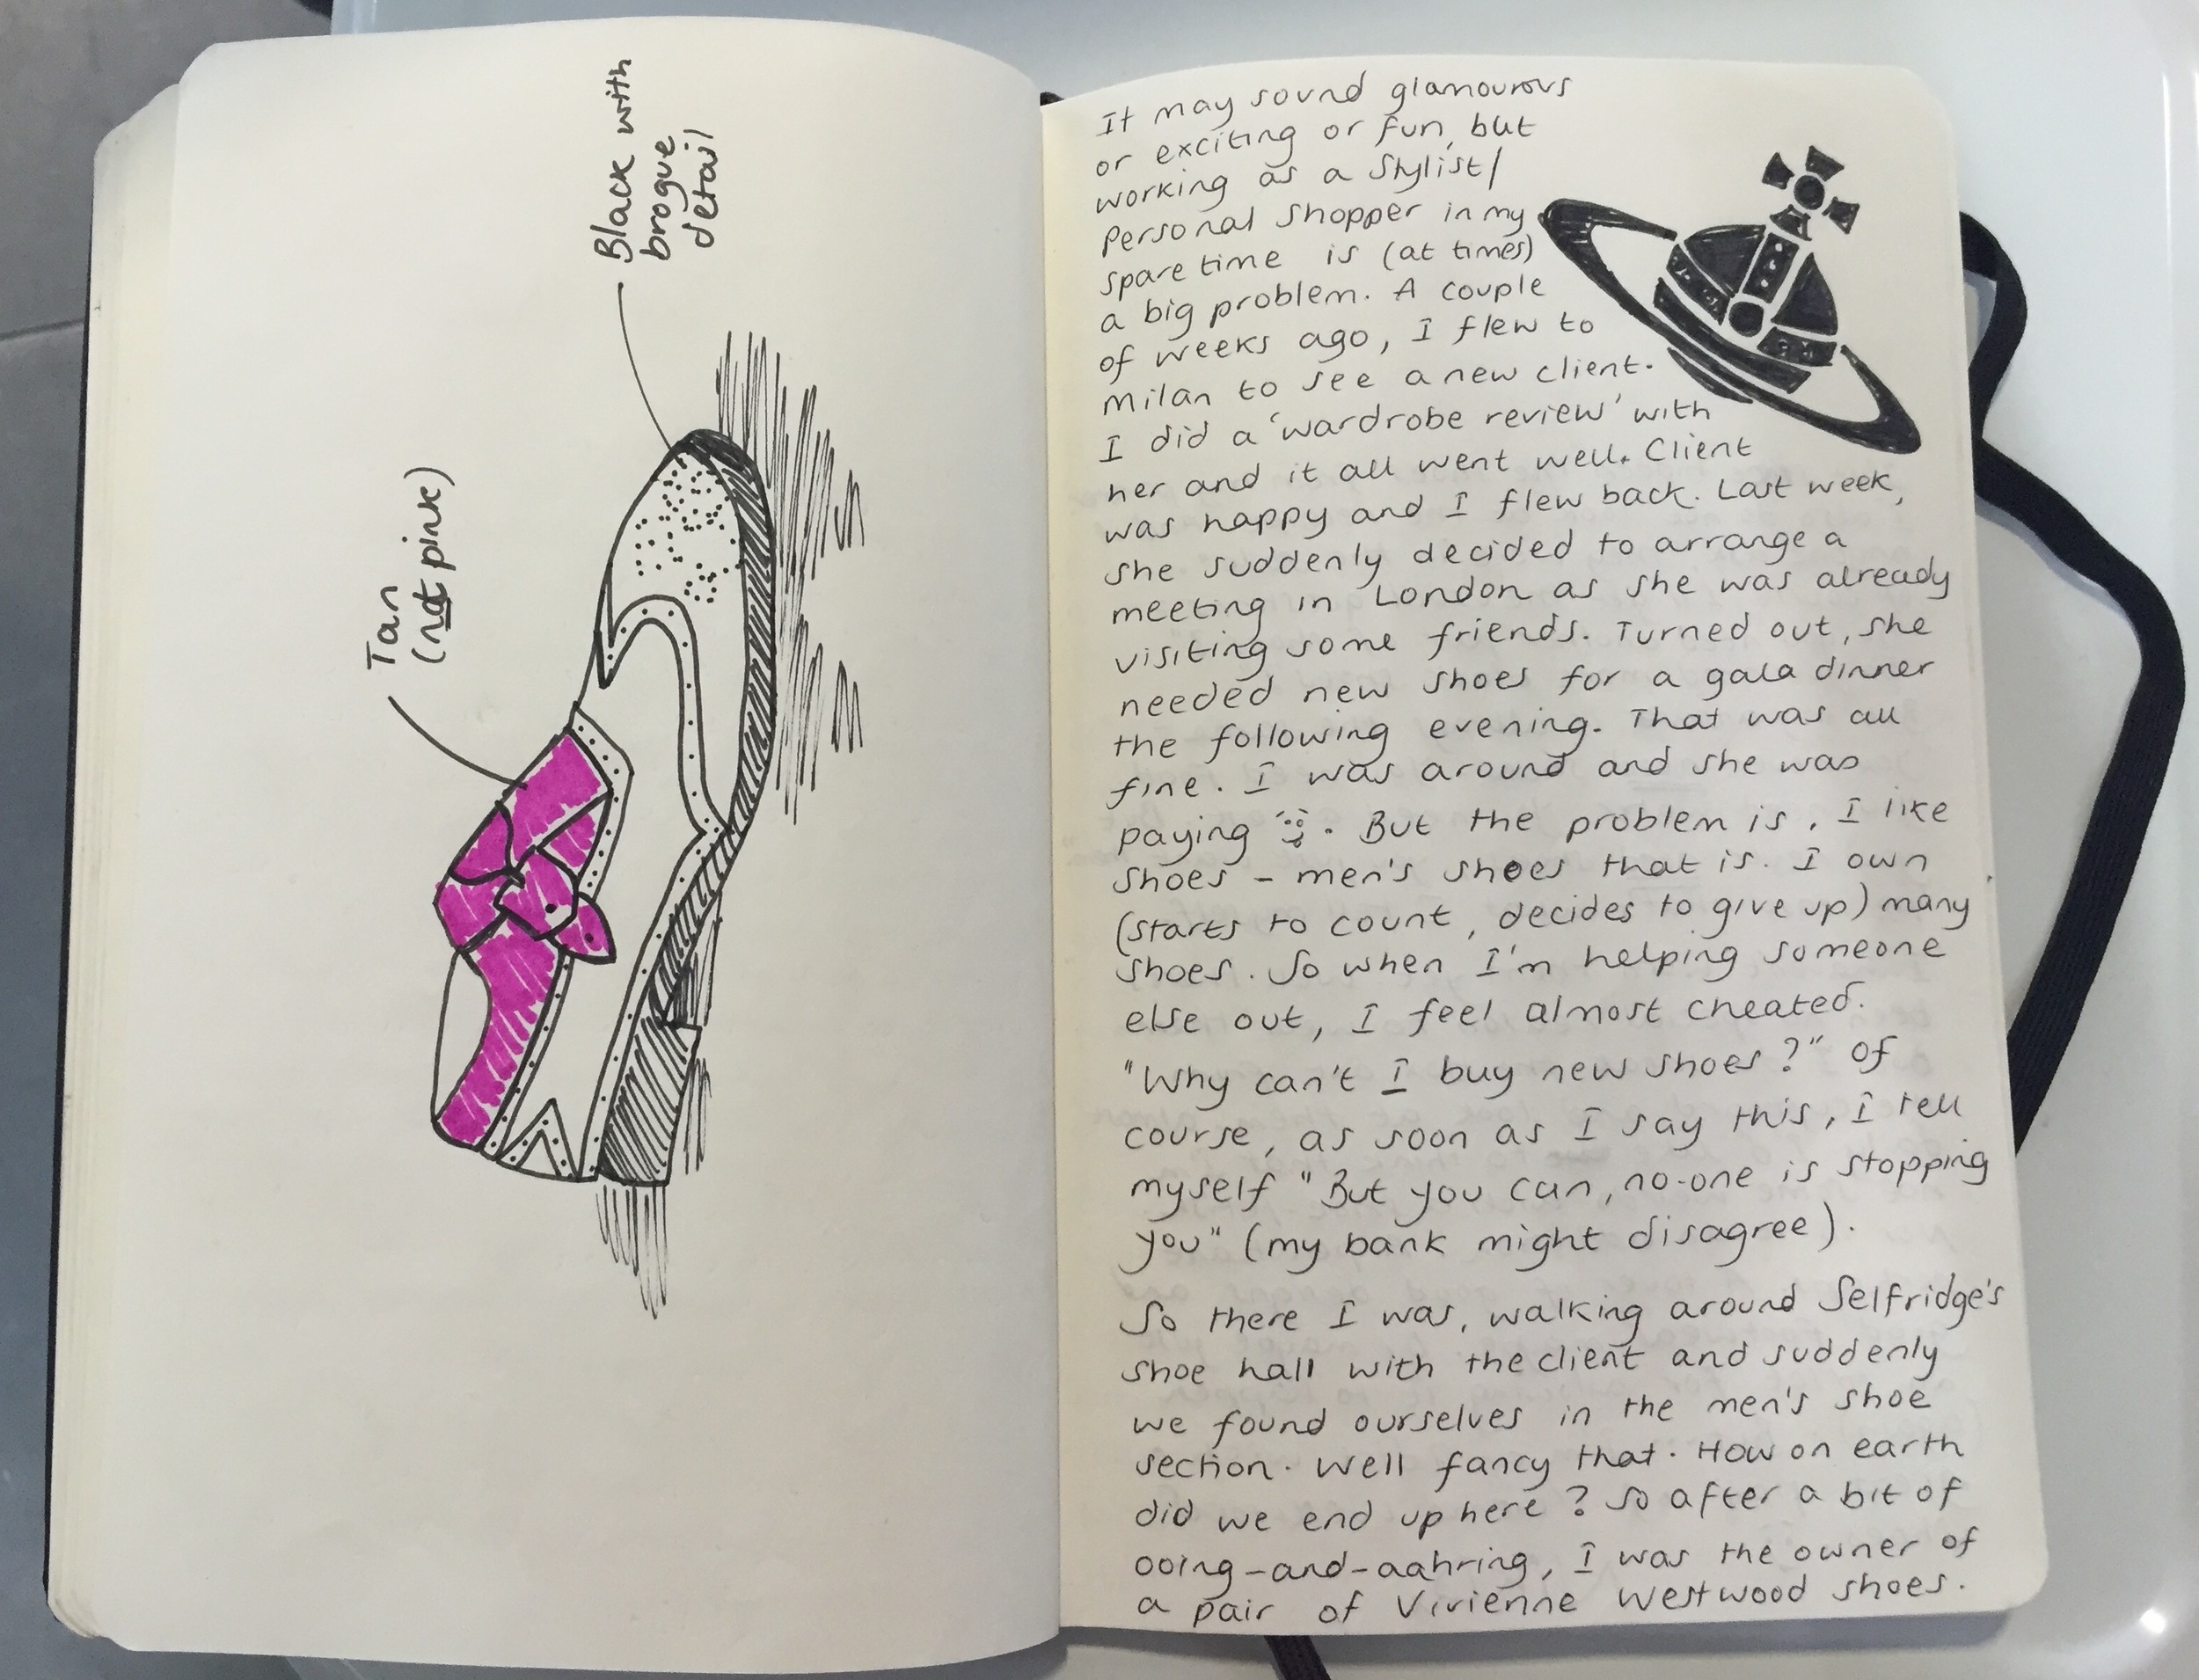 Black with
brogue
detail
Tan
(not pink)
It may sound glamourous
or exciting or fun, but
working as a Stylist/
Personal Shopper in my
spare time is (at times)
a big problem. A couple
of weeks ago, I flew to
Milan to see a new client.
I did a 'wardrobe review' with
her and it all went well. Client
was happy and I flew back. Last week,
she suddenly decided to arrange a
meeting in London as she was already
visiting some friends. Turned out, she
needed new shoes for a gala dinner
the following evening. That was all
fine. I was around and she was
paying :). But the problem is, I like
shoes - men's shoes that is. I own
(starts to count, decides to give up) many
shoes. So when I'm helping someone
else out, I feel almost cheated.
"Why can't I buy new shoes?" Of
course, as soon as I say this, I tell
myself "But you can, no-one is stopping
you" (my bank might disagree).
So there I was, walking around Selfridge's
shoe hall with the client and suddenly
we found ourselves in the men's shoe
section. Well fancy that. How on earth
did we end up here? So after a bit of
ooing-and-aahring, I was the owner of
a pair of Vivienne Westwood shoes.